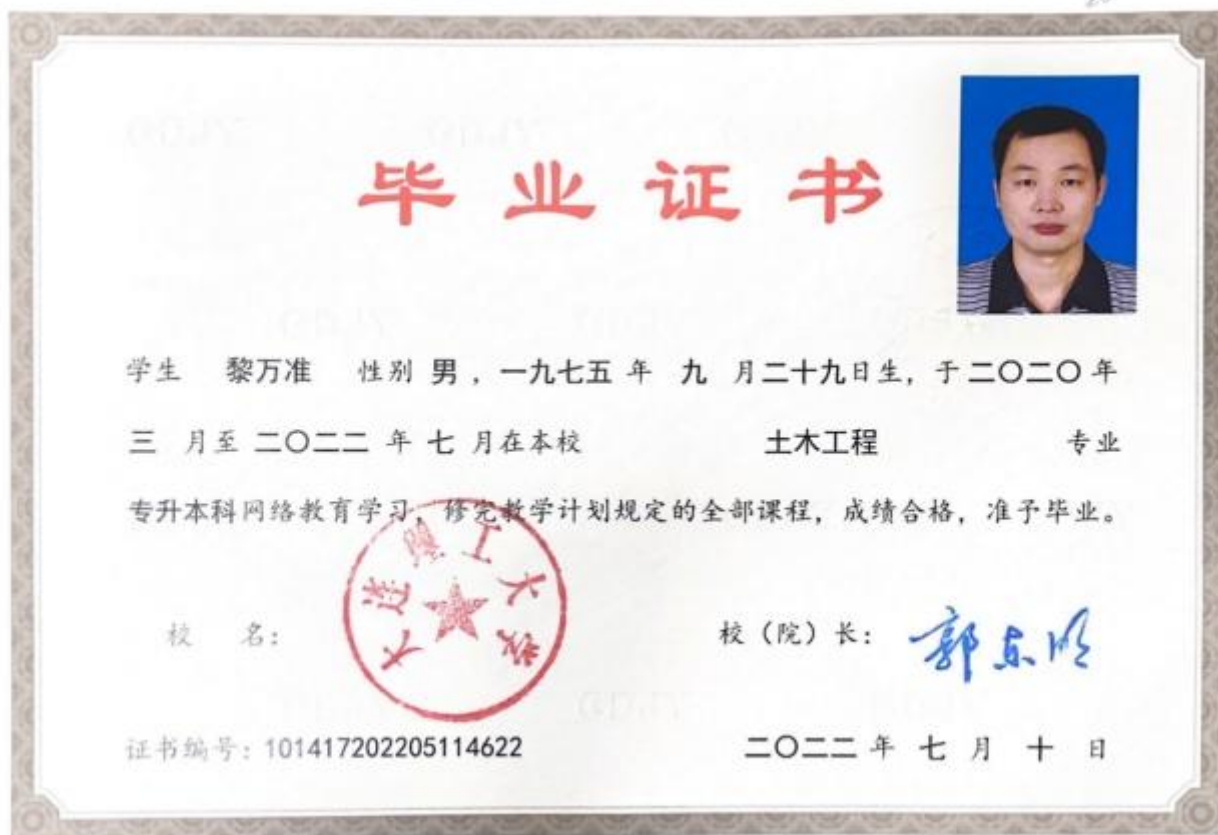 毕业证书
学生 黎万准 性别 男，一九七五 年 九 月二十九日生，于二〇二〇年
三 月至 二〇二二 年 七 月在本校 土木工程 专业
专升本科网络教育学习，修完教学计划规定的全部课程，成绩合格，准予毕业。
大连理工大学
校 名：
校（院）长： 郭东明
证书编号：101417202205114622
二〇二二 年 七 月 十 日